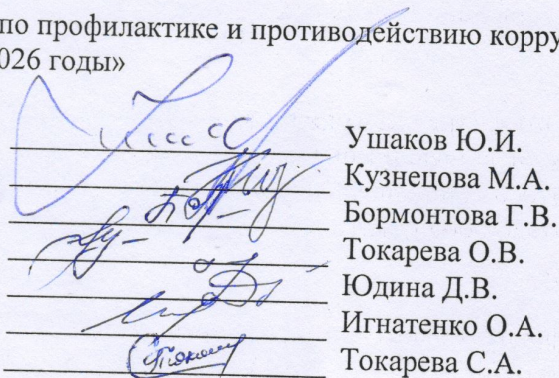 по профилактике и противодействию корру
026 годы»
Ушаков Ю.И.
Кузнецова М.А.
Бормонтова Г.В.
Токарева О.В.
Юдина Д.В.
Игнатенко О.А.
Токарева С.А.